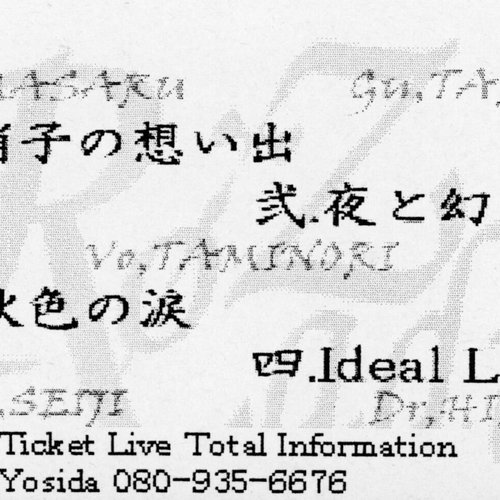 MASARU Gu,TA
子の想い出
弐.夜と幻
Vo,TAMINORI
色の涙
四.Ideal L
,SEIJI Dr,HI
Ticket Live Total Information
Yosida 080-935-6676